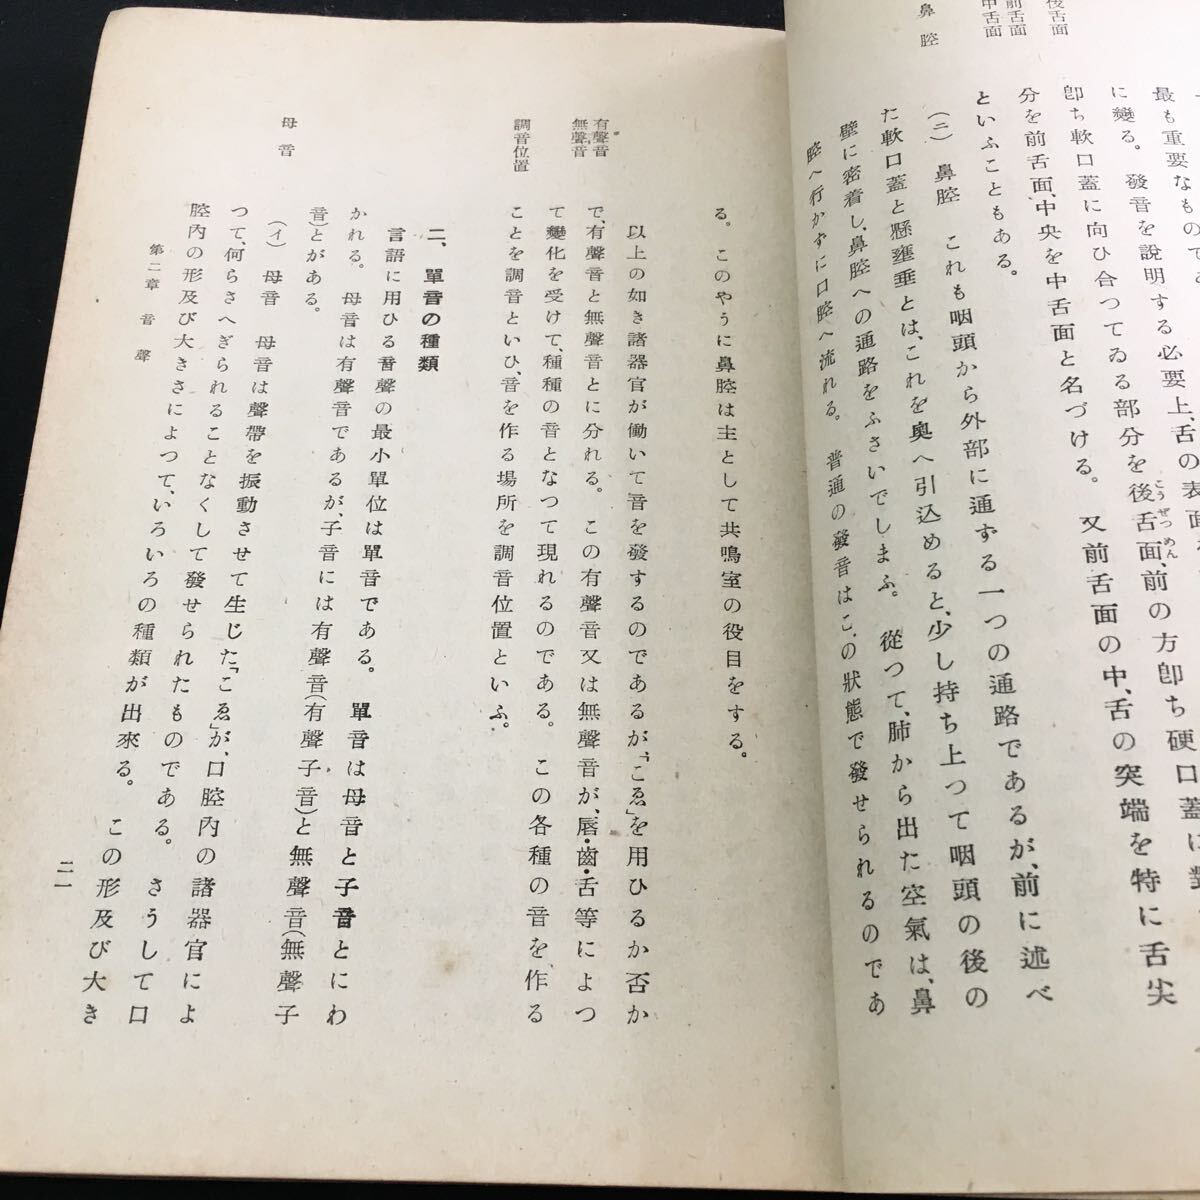 後舌面
前舌面
中舌面
鼻腔
最も重要なものであ
に變る。 發音を說明する必要上、舌の表面
卽ち軟口蓋に向ひ合つてゐる部分を後舌面、前の方卽ち硬口蓋に對
こうぜつめん
分を前舌面、中央を中舌面と名づける。 又前舌面の中、舌の突端を特に舌尖
といふこともある。
(ニ) 鼻腔 これも咽頭から外部に通ずる一つの通路であるが、前に述べ
た軟口蓋と懸壅垂とは、これを奧へ引込めると、少し持ち上つて咽頭の後の
壁に密着し、鼻腔への通路をふさいでしまふ。 從つて、肺から出た空氣は、鼻
腔へ行かずに口腔へ流れる。 普通の發音はこの狀態で發せられるのであ
る。このやうに鼻腔は主として共鳴室の役目をする。
有聲音
無聲音
以上の如き諸器官が働いて音を發するのであるが、「こゑ」を用ひるか否か
で、有聲音と無聲音とに分れる。 この有聲音又は無聲音が、唇・齒・舌等によつ
て變化を受けて、種種の音となつて現れるのである。 この各種の音を作る
調音位置
ことを調音といひ、音を作る場所を調音位置といふ。
二、單音の種類
言語に用ひる音聲の最小單位は單音である。 單音は母音と子音とにわ
かれる。 母音は有聲音であるが、子音には有聲音(有聲子音)と無聲音(無聲子
音)とがある。
母音
(イ) 母音 母音は聲帶を振動させて生じた「こゑ」が、口腔內の諸器官によ
つて、何らさへぎられることなくして發せられたものである。 さうして口
腔內の形及び大きさによつて、いろいろの種類が出來る。 この形及び大き
第二章 音聲
二一